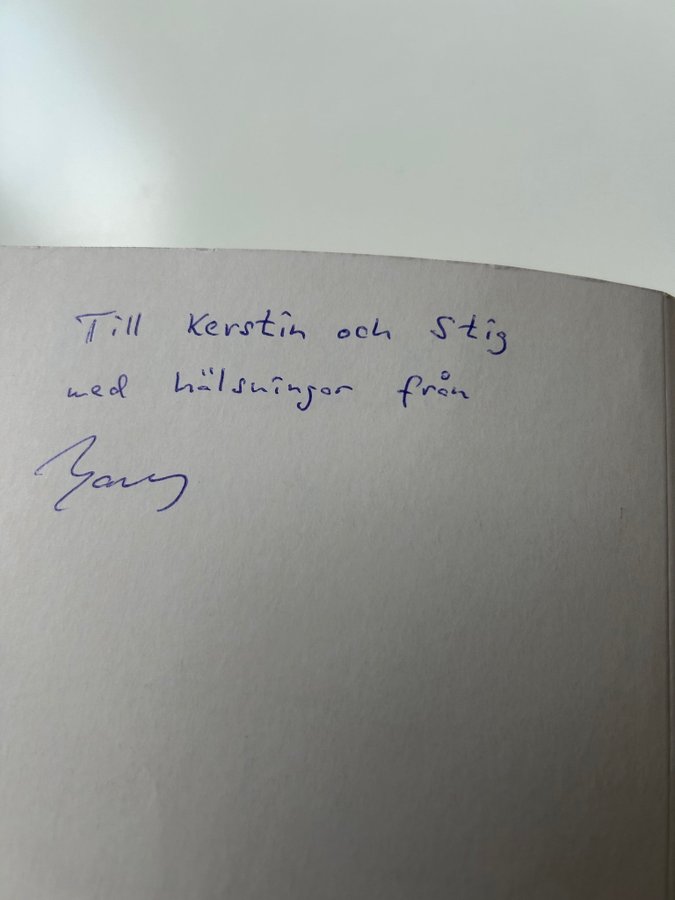 Till Kerstin och Stig
med hälsningar från